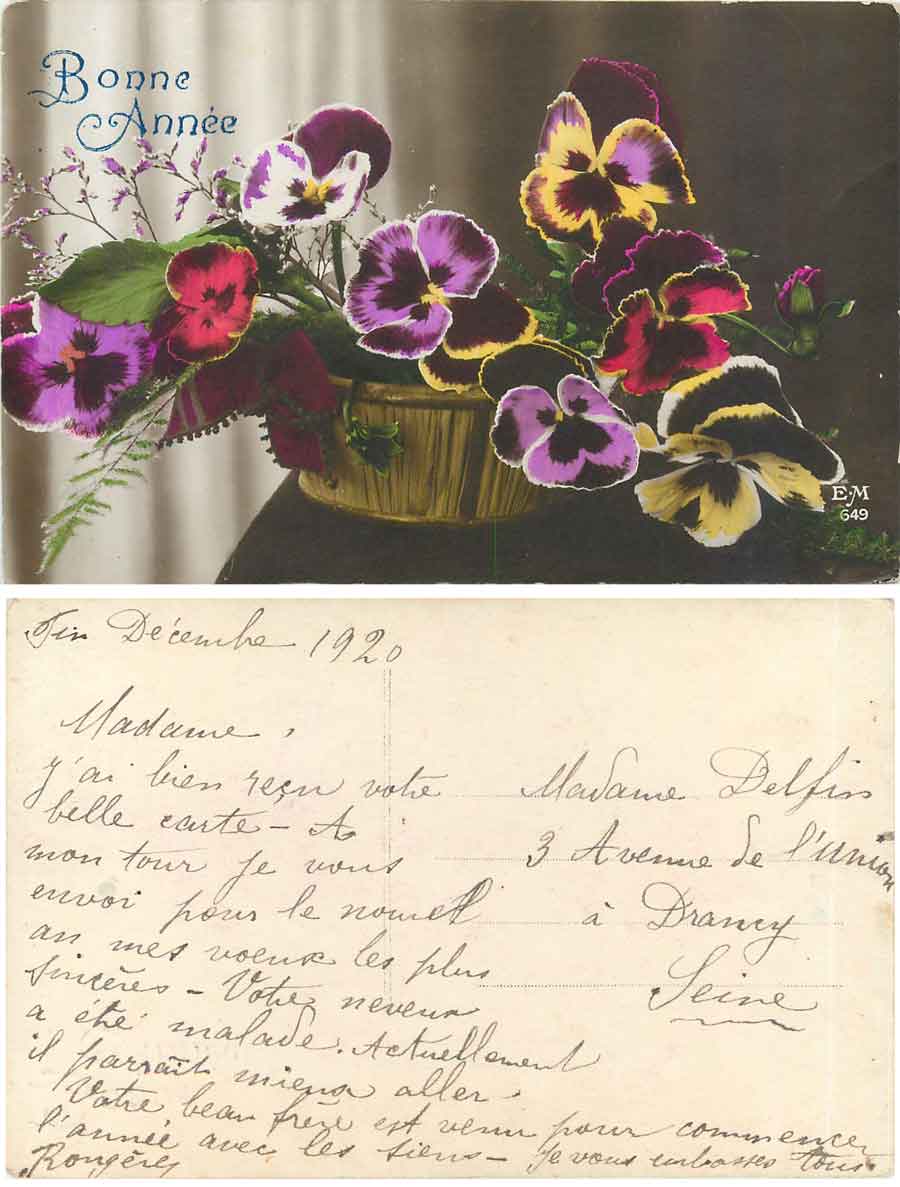 Bonne
Année
E·M
649
Fin Décembre 1920
Madame,
J'ai bien reçu votre
belle carte - A
mon tour je vous
envoi pour le nouvel
an mes voeux les plus
sincères - Votre neveux
a été malade. Actuellement
il parraît mieux aller.
Votre beau frère est venu pour commencer
l'année avec les siens - Je vous embrasses tous.
Rongères
Madame Delfin
3 Avenue de l'Union
à Drancy
Seine